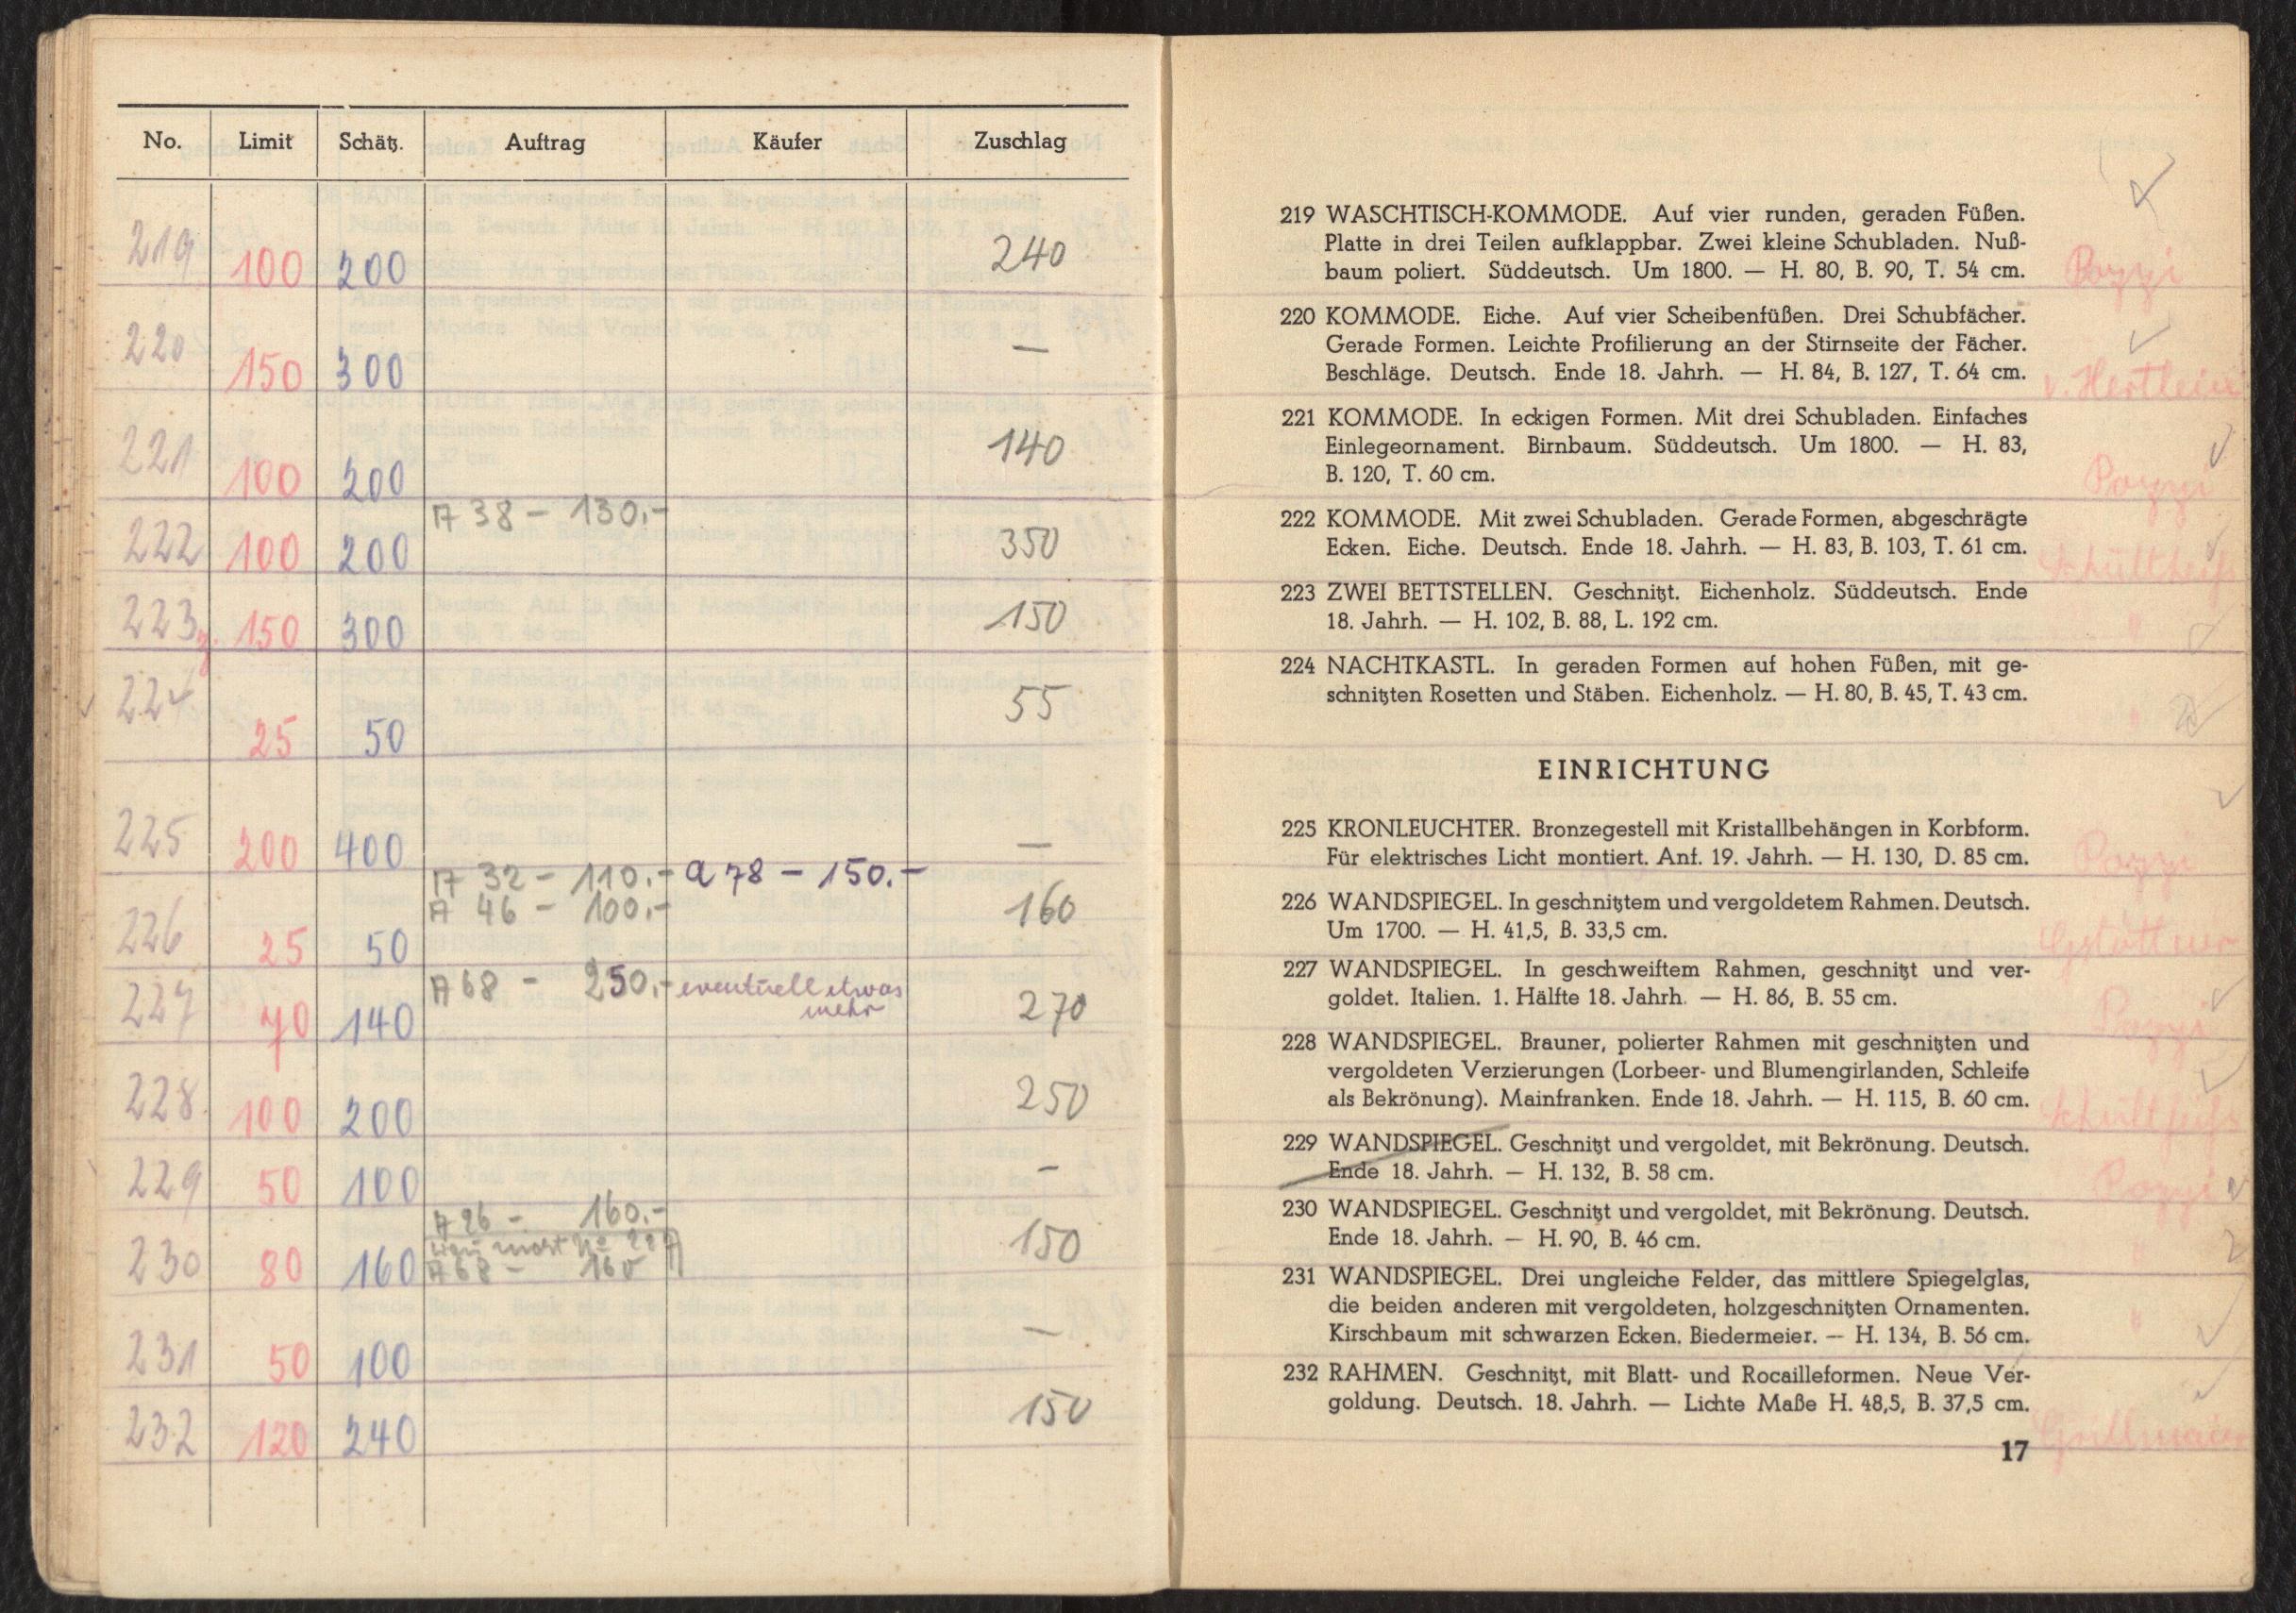 No. Limit Schätz. Auftrag Käufer Zuschlag
219 100 200 240
220 150 300 —
221 100 200 140
A 38 — 130.-
222 100 200 350
223 z. 150 300 150
224 25 50 55
225 200 400 —
A 32 — 110.- a 78 — 150.-
A 46 — 100.-
226 25 50 160
A 68 — 250.- eventuell etwas
mehr
227 70 140 270
228 100 200 250
229 50 100 -
A 26 — 160.-
230 80 160 A 68 — 160 150
231 50 100 —
232 120 240 150
219 WASCHTISCH-KOMMODE. Auf vier runden, geraden Füßen.
Platte in drei Teilen aufklappbar. Zwei kleine Schubladen. Nuß-
baum poliert. Süddeutsch. Um 1800. — H. 80, B. 90, T. 54 cm.
Pozzi
220 KOMMODE. Eiche. Auf vier Scheibenfüßen. Drei Schubfächer.
Gerade Formen. Leichte Profilierung an der Stirnseite der Fächer.
Beschläge. Deutsch. Ende 18. Jahrh. — H. 84, B. 127, T. 64 cm.
v. Hertlein
221 KOMMODE. In eckigen Formen. Mit drei Schubladen. Einfaches
Einlegeornament. Birnbaum. Süddeutsch. Um 1800. — H. 83,
B. 120, T. 60 cm.
Pozzi
222 KOMMODE. Mit zwei Schubladen. Gerade Formen, abgeschrägte
Ecken. Eiche. Deutsch. Ende 18. Jahrh. — H. 83, B. 103, T. 61 cm.
Schültheiß
223 ZWEI BETTSTELLEN. Geschnitzt. Eichenholz. Süddeutsch. Ende
18. Jahrh. — H. 102, B. 88, L. 192 cm.
"
224 NACHTKASTL. In geraden Formen auf hohen Füßen, mit ge-
schnitzten Rosetten und Stäben. Eichenholz. — H. 80, B. 45, T. 43 cm.
"
EINRICHTUNG
225 KRONLEUCHTER. Bronzegestell mit Kristallbehängen in Korbform.
Für elektrisches Licht montiert. Anf. 19. Jahrh. — H. 130, D. 85 cm.
Pozzi
226 WANDSPIEGEL. In geschnitztem und vergoldetem Rahmen. Deutsch.
Um 1700. — H. 41,5, B. 33,5 cm.
Gstöttner
227 WANDSPIEGEL. In geschweiftem Rahmen, geschnitzt und ver-
goldet. Italien. 1. Hälfte 18. Jahrh. — H. 86, B. 55 cm.
Pozzi
228 WANDSPIEGEL. Brauner, polierter Rahmen mit geschnitzten und
vergoldeten Verzierungen (Lorbeer- und Blumengirlanden, Schleife
als Bekrönung). Mainfranken. Ende 18. Jahrh. — H. 115, B. 60 cm.
Schültheiß
229 WANDSPIEGEL. Geschnitzt und vergoldet, mit Bekrönung. Deutsch.
Ende 18. Jahrh. — H. 132, B. 58 cm.
Pozzi
230 WANDSPIEGEL. Geschnitzt und vergoldet, mit Bekrönung. Deutsch.
Ende 18. Jahrh. — H. 90, B. 46 cm.
"
231 WANDSPIEGEL. Drei ungleiche Felder, das mittlere Spiegelglas,
die beiden anderen mit vergoldeten, holzgeschnitzten Ornamenten.
Kirschbaum mit schwarzen Ecken. Biedermeier. — H. 134, B. 56 cm.
"
232 RAHMEN. Geschnitzt, mit Blatt- und Rocailleformen. Neue Ver-
goldung. Deutsch. 18. Jahrh. — Lichte Maße H. 48,5, B. 37,5 cm.
17